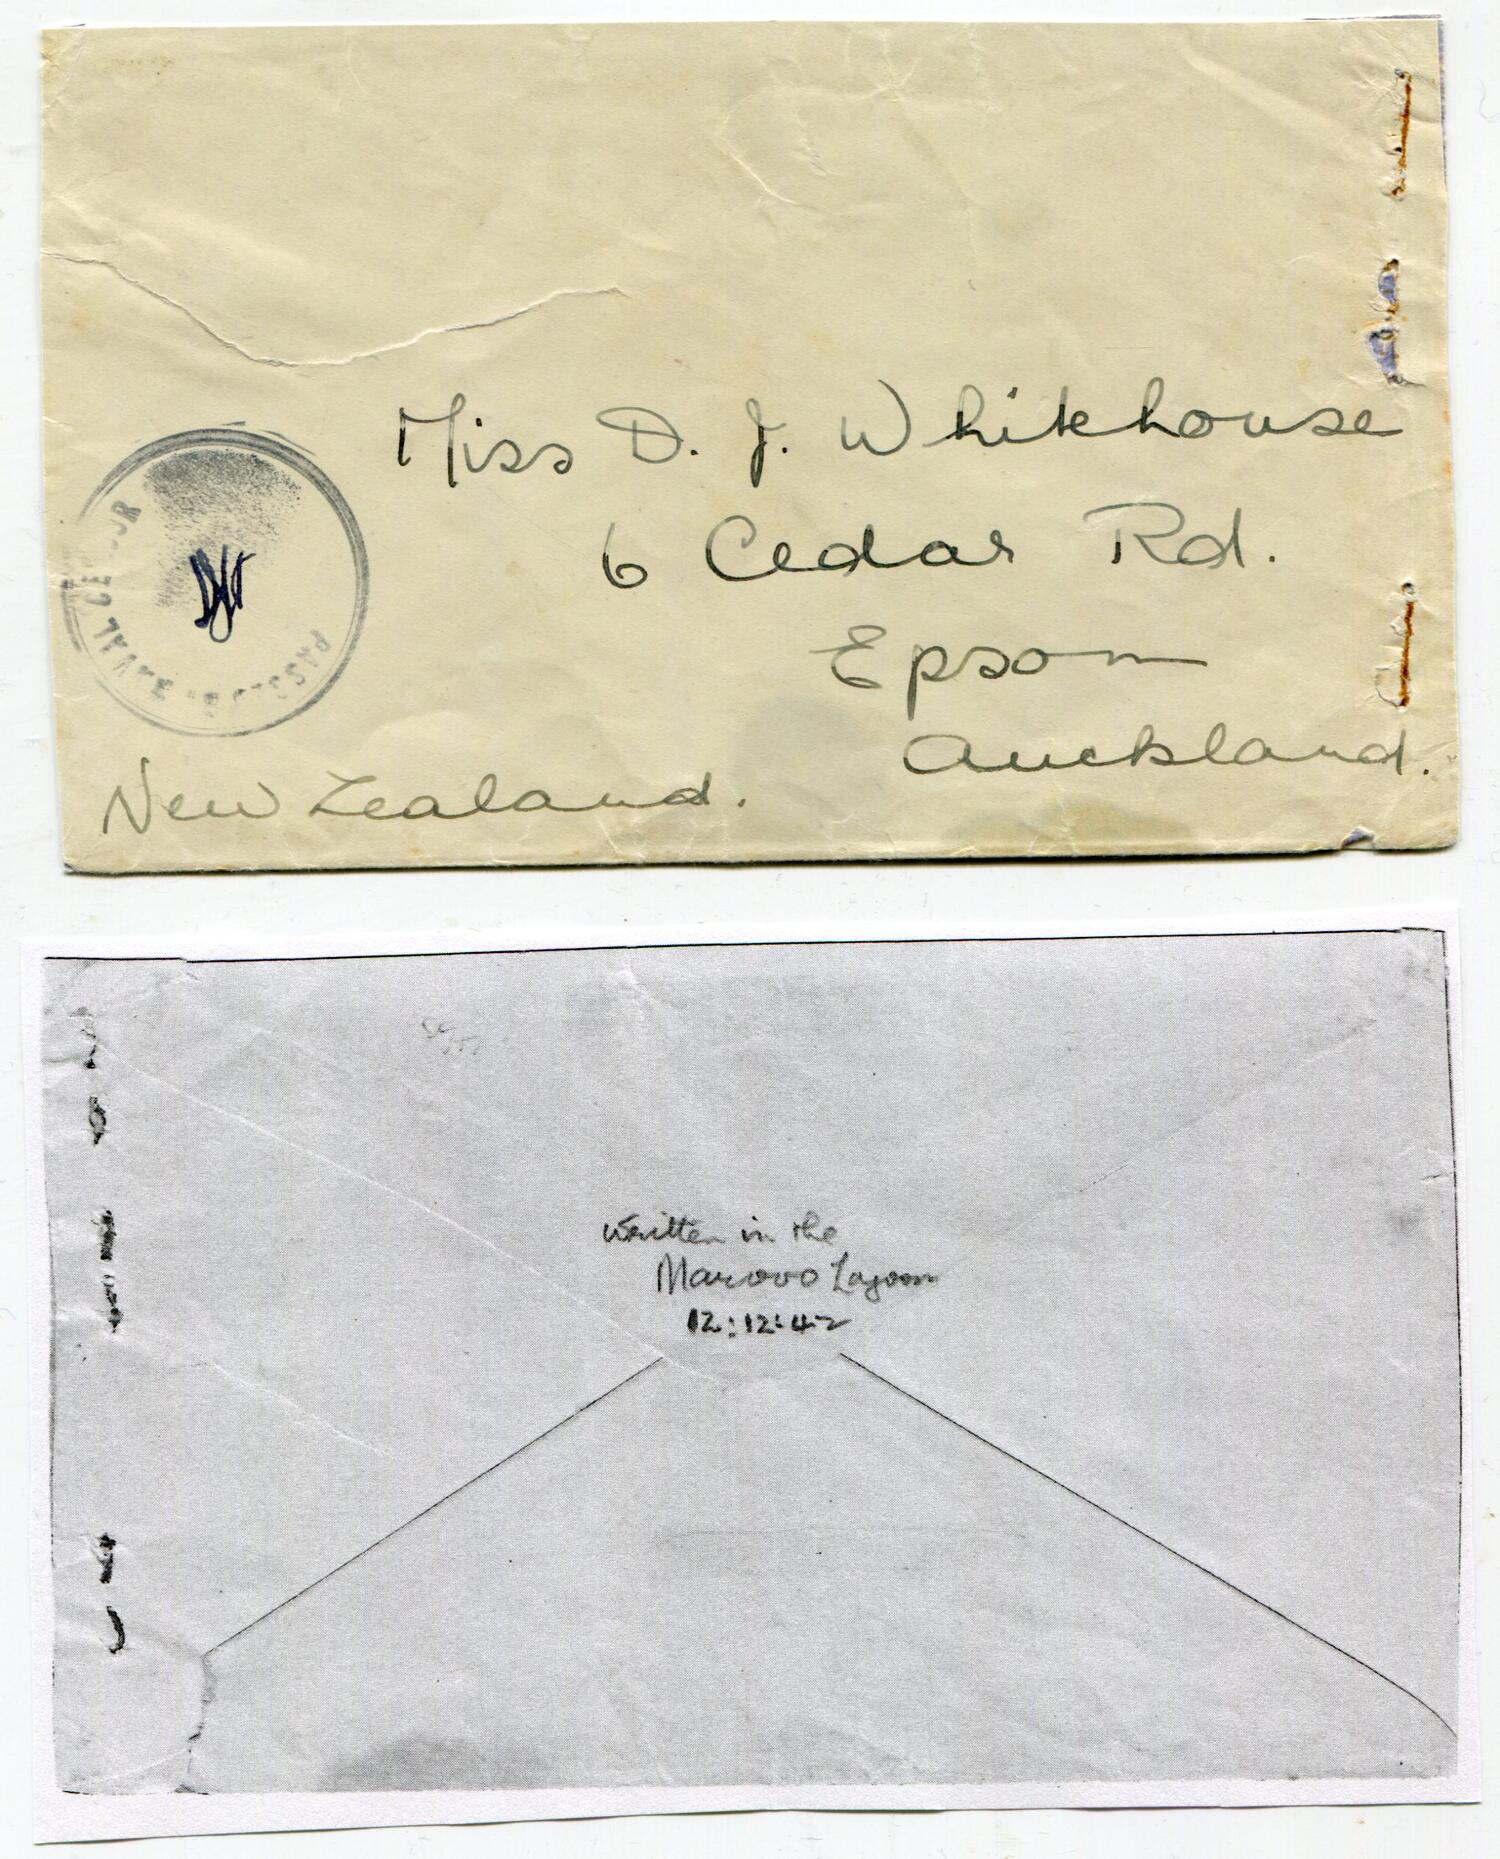 Miss D. J. Whitehouse
6 Cedar Rd.
Epsom
Auckland.
New Zealand.
PASSED BY NAVAL CENSOR
written in the
Marovo Lagoon
12:12:42